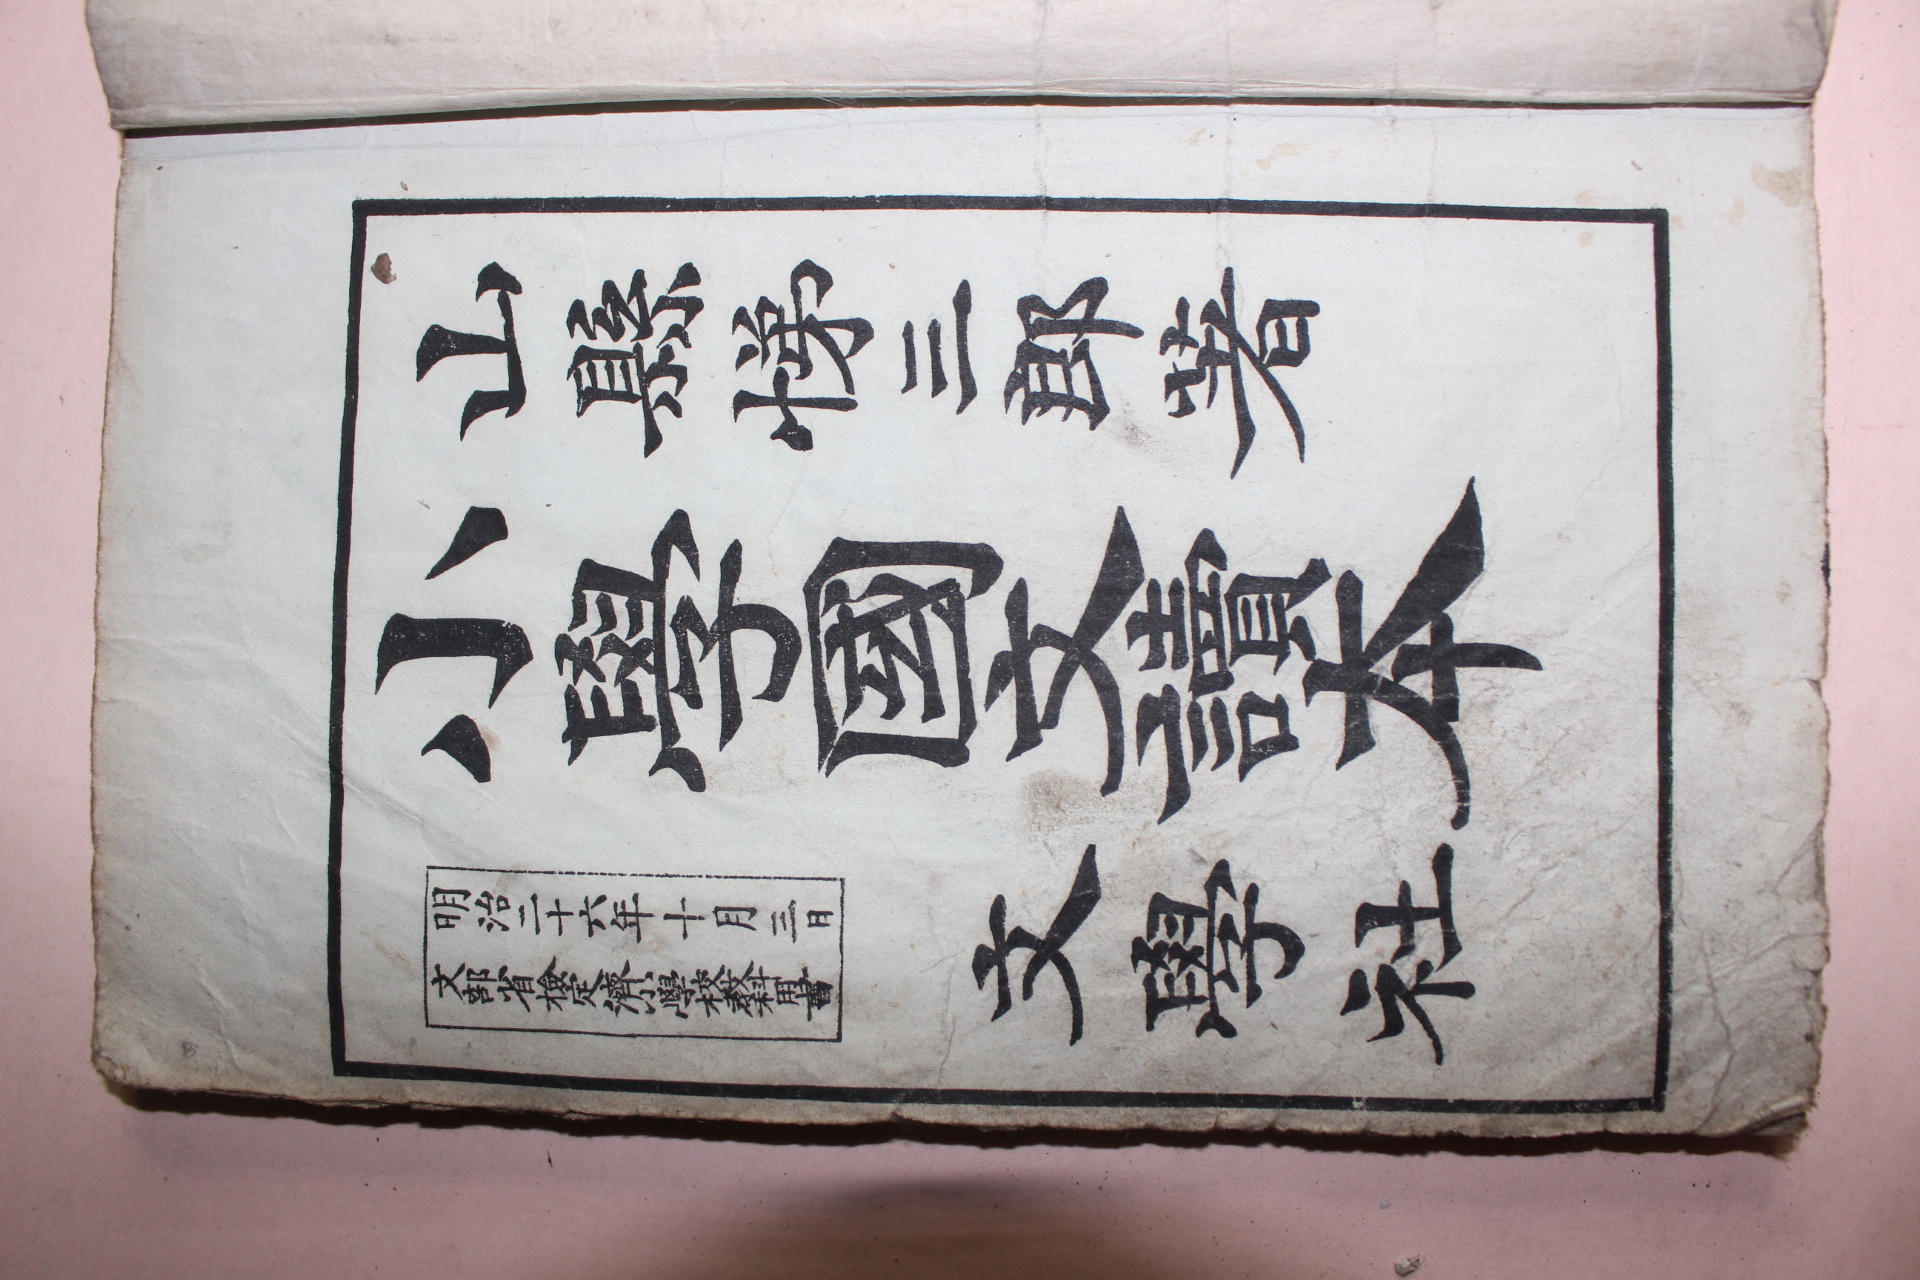 山縣悌三郎著
小學國文讀本
文學社
明治二十六年十月三日
文部省檢定濟小學校教科用書